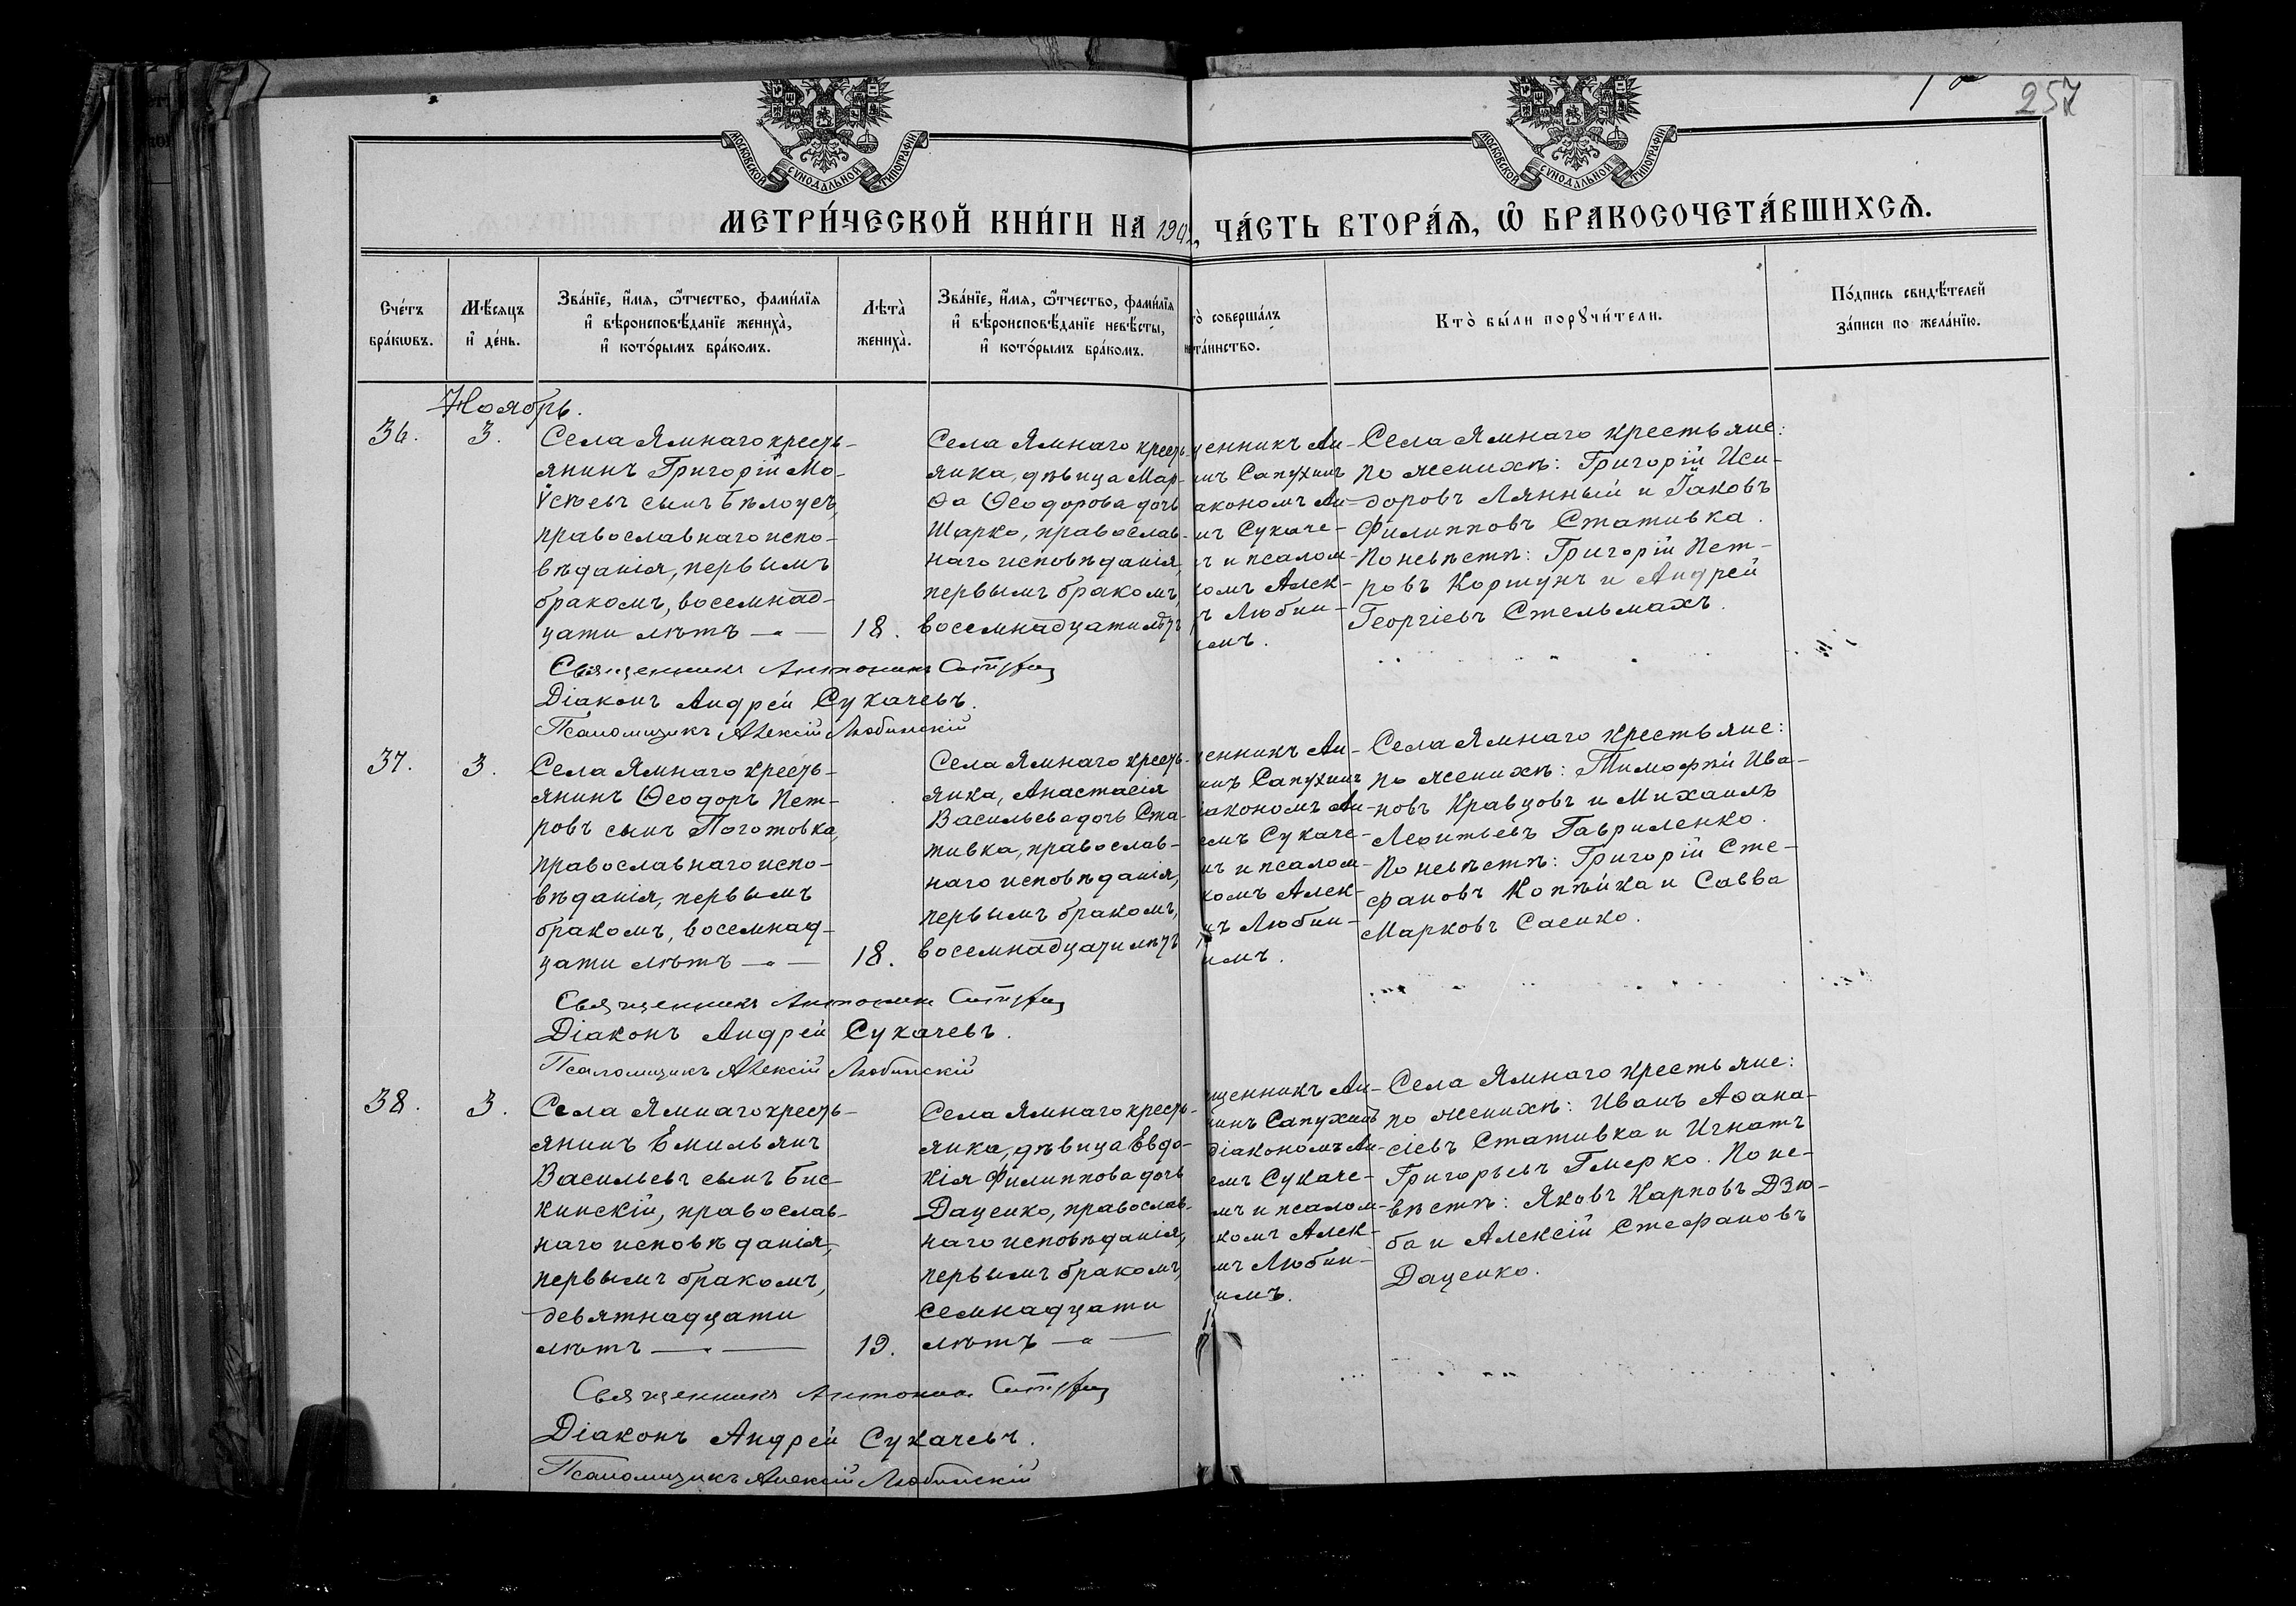 257
МОСКОВСКОЙ СѴНОДАЛЬНОЙ ТИПОГРАФІИ
МОСКОВСКОЙ СѴНОДАЛЬНОЙ ТИПОГРАФІИ
МЕТРИ́ЧЕСКОЙ КНИ́ГИ НА 190 , ЧА́СТЬ ВТОРА́Ѧ, Ѽ БРАКОСОЧЕТА́ВШИХСѦ.
Сче́тъ
бра́кѡвъ.
Мѣ́сѧцъ
и҆ де́нь.
Зва́нїе, и҆́мѧ, ѻ҆́тчество, фами́лїѧ
и҆ вѣроисповѣ́данїе жениха̀,
и҆ кото́рымъ бра́комъ.
Лѣта̀
жениха̀.
Зва́нїе, и҆́мѧ, ѻ҆́тчество, фами́лїѧ
и҆ вѣроисповѣ́данїе невѣ́сты,
и҆ кото́рымъ бра́комъ.
то̀ соверша́лъ
та́инство.
Кто̀ бы́ли порꙋчи́тели.
По́дпись свидѣ́телей
за́писи по жела́нїю.
Ноябрь.
36.
3.
Села Ямнаго кресть-
янинъ Григорій Мо-
ѵсѣевъ сынъ Бѣлоусъ,
православнаго испо-
вѣданія, первымъ
бракомъ, восемнад-
цати лѣтъ —
18.
Села Ямнаго кресть-
янка, дѣвица Мар-
ѳа Ѳеодорова дочь
Шарко, православ-
наго исповѣданія,
первымъ бракомъ,
восемнадцати лѣтъ
щенникъ Ан-
инъ Сапухинъ
акономъ Ан-
мъ Сукаче-
ъ и псалом-
комъ Алек-
ъ Любин-
имъ.
Села Ямнаго крестьяне:
по женихѣ: Григорій Иси-
доровъ Лянный и Іаковъ
Филипповъ Стативка.
По невѣстѣ: Григорій Пет-
ровъ Коршунъ и Андрей
Георгіевъ Стельмахъ.
Священникъ Антонинъ
Діаконъ Андрей Сукачевъ.
Псаломщикъ Алексій Любинскій
37.
3.
Села Ямнаго кресть-
янинъ Ѳеодоръ Пет-
ровъ сынъ Поготовка,
православнаго испо-
вѣданія, первымъ
бракомъ, восемнад-
цати лѣтъ —
18.
Села Ямнаго кресть-
янка, Анастасія
Васильева дочь Ста-
тивка, православ-
наго исповѣданія,
первымъ бракомъ,
восемнадцати лѣтъ
щенникъ Ан-
нинъ Сапухинъ
іакономъ Ан-
емъ Сукаче-
мъ и псалом-
комъ Алек-
мъ Любин-
имъ.
Села Ямнаго крестьяне:
по женихѣ: Тимофѣй Ива-
новъ Кравцовъ и Михаилъ
Леонтьевъ Гавриленко.
По невѣстѣ: Григорій Сте-
фановъ Копѣйка и Савва
Марковъ Саенко.
Священникъ Антонинъ
Діаконъ Андрей Сукачевъ.
Псаломщикъ Алексій Любинскій
38.
3.
Села Ямнаго кресть-
янинъ Емильянъ
Васильевъ сынъ Бис-
кинскій, православ-
наго исповѣданія,
первымъ бракомъ,
девятнадцати
лѣтъ —
19.
Села Ямнаго кресть-
янка, дѣвица Евдо-
кія Филиппова дочь
Даценко, православ-
наго исповѣданія,
первымъ бракомъ,
семнадцати
лѣтъ —
щенникъ Ан-
нинъ Сапухинъ
діакономъ Ан-
емъ Сукаче-
мъ и псалом-
комъ Алек-
мъ Любин-
имъ.
Села Ямнаго крестьяне:
по женихѣ: Иванъ Аѳана-
сіевъ Стативка и Игнатъ
Григорьевъ Гмерко. По не-
вѣстѣ: Яковъ Карповъ Дзю-
ба и Алексій Стефановъ
Даценко.
Священникъ Антонинъ
Діаконъ Андрей Сукачевъ.
Псаломщикъ Алексій Любинскій